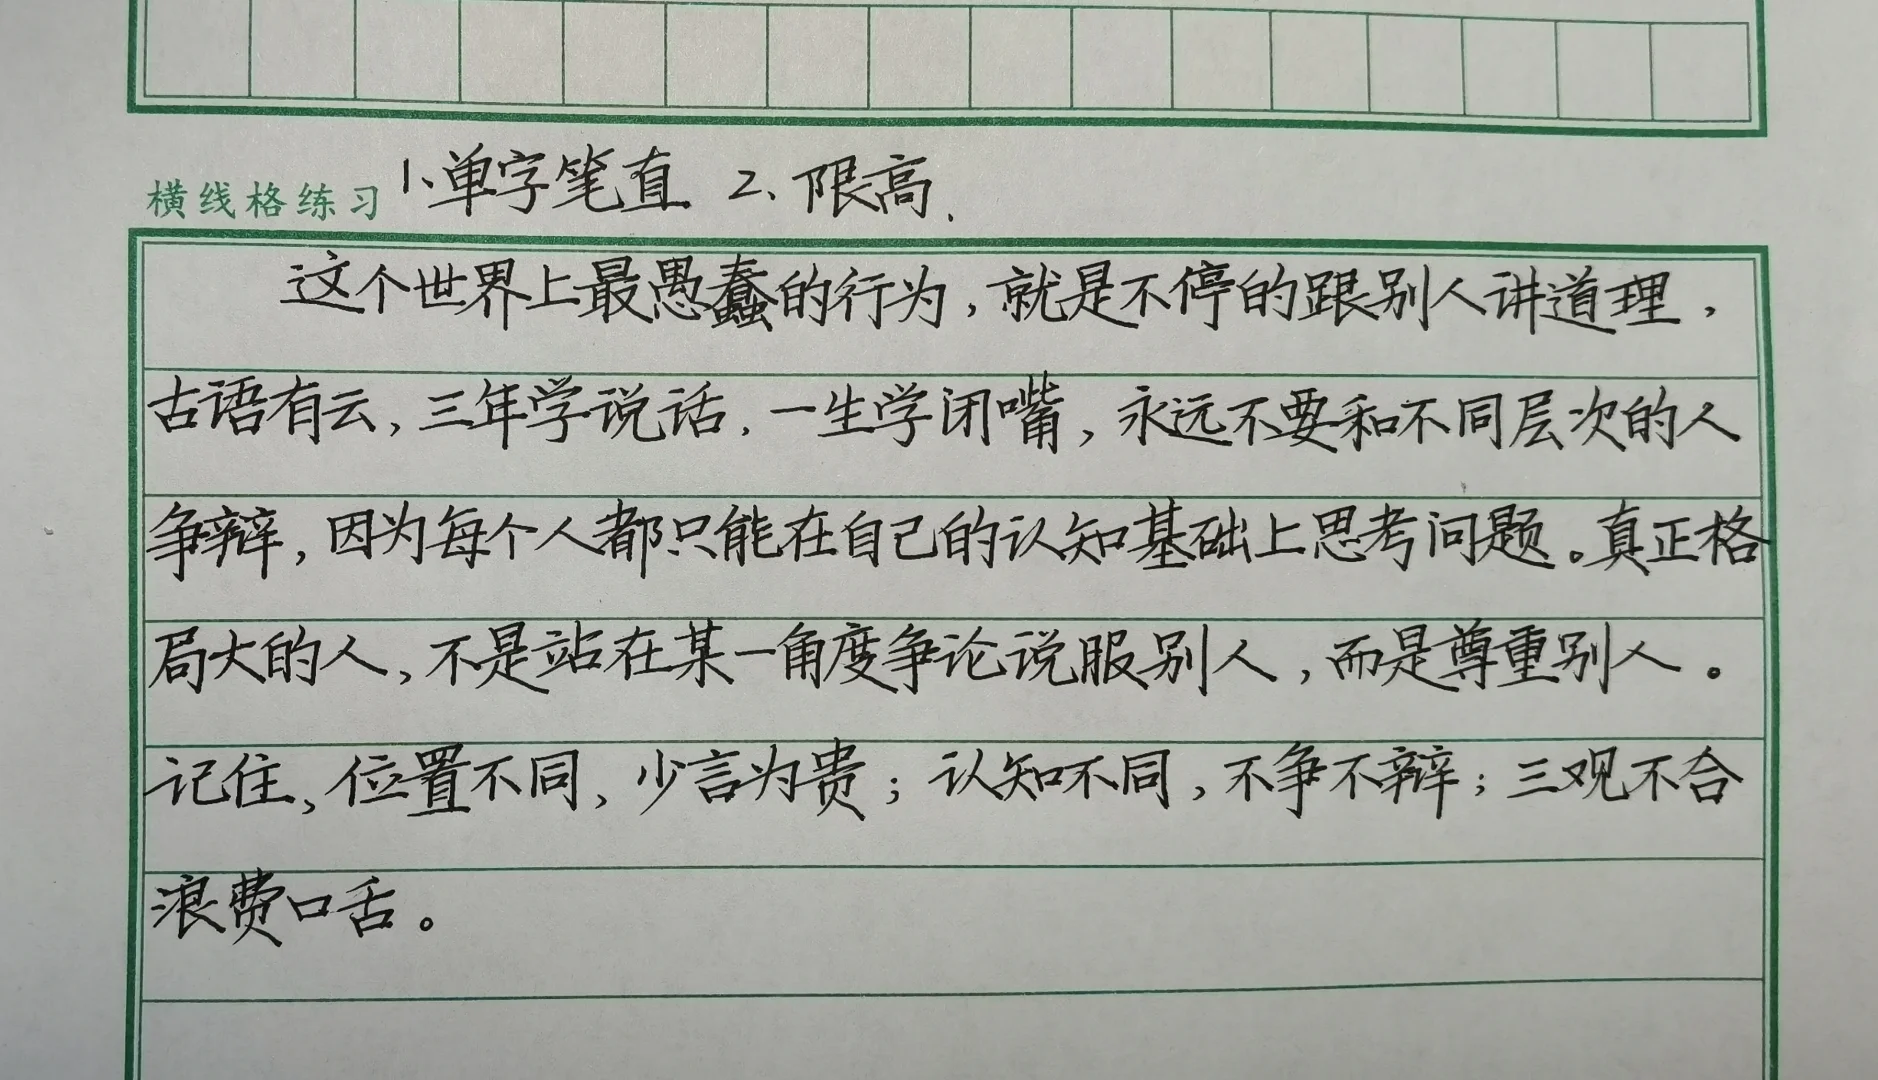 横线格练习 1、单字笔直 2、限高.
这个世界上最愚蠢的行为，就是不停的跟别人讲道理，
古语有云，三年学说话，一生学闭嘴，永远不要和不同层次的人
争辩，因为每个人都只能在自己的认知基础上思考问题。真正格
局大的人，不是站在某一角度争论说服别人，而是尊重别人。
记住，位置不同，少言为贵；认知不同，不争不辩；三观不合
浪费口舌。